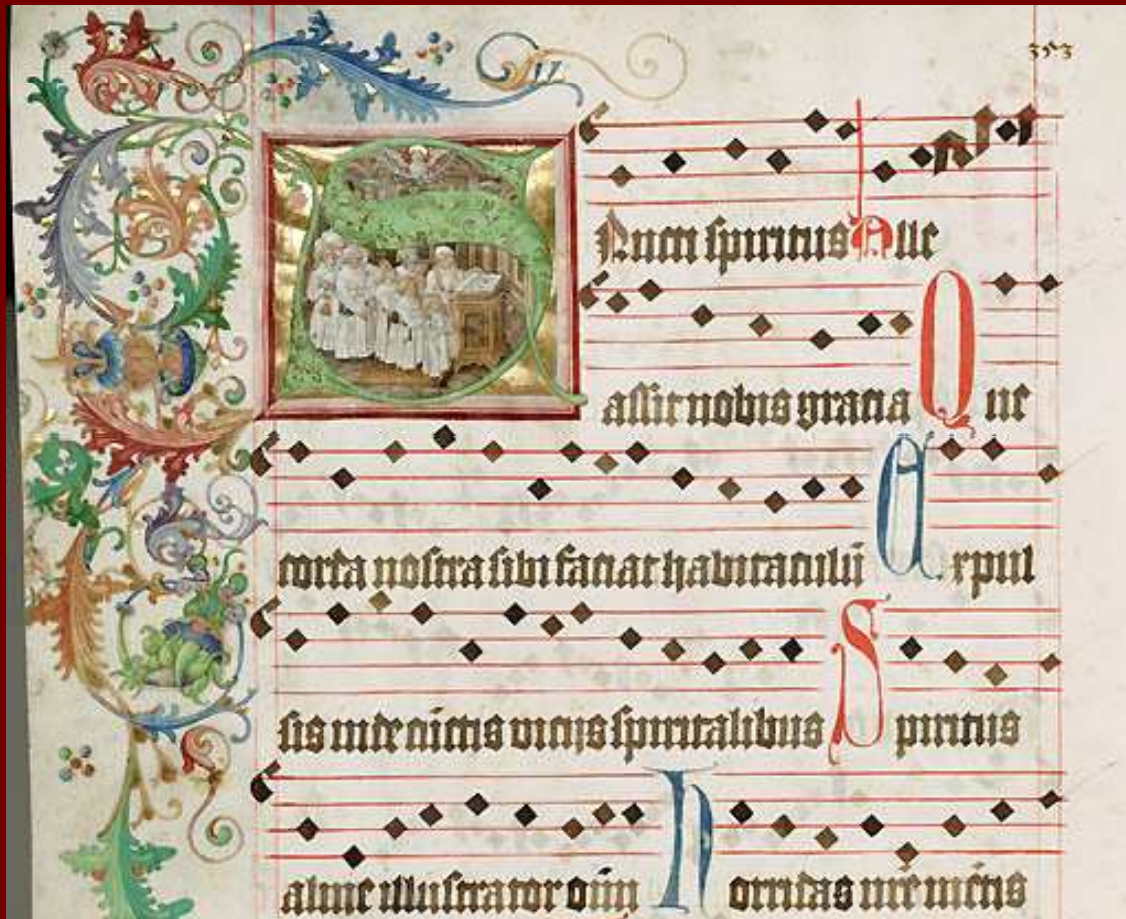 353
Sancti spiritus Alle
assit nobis gracia Que
corda nostra sibi faciat habitaculū Expul
sis inde cunctis vicijs spiritalibus Spiritus
alme illustrator oīm Horridas nr̄e mētis